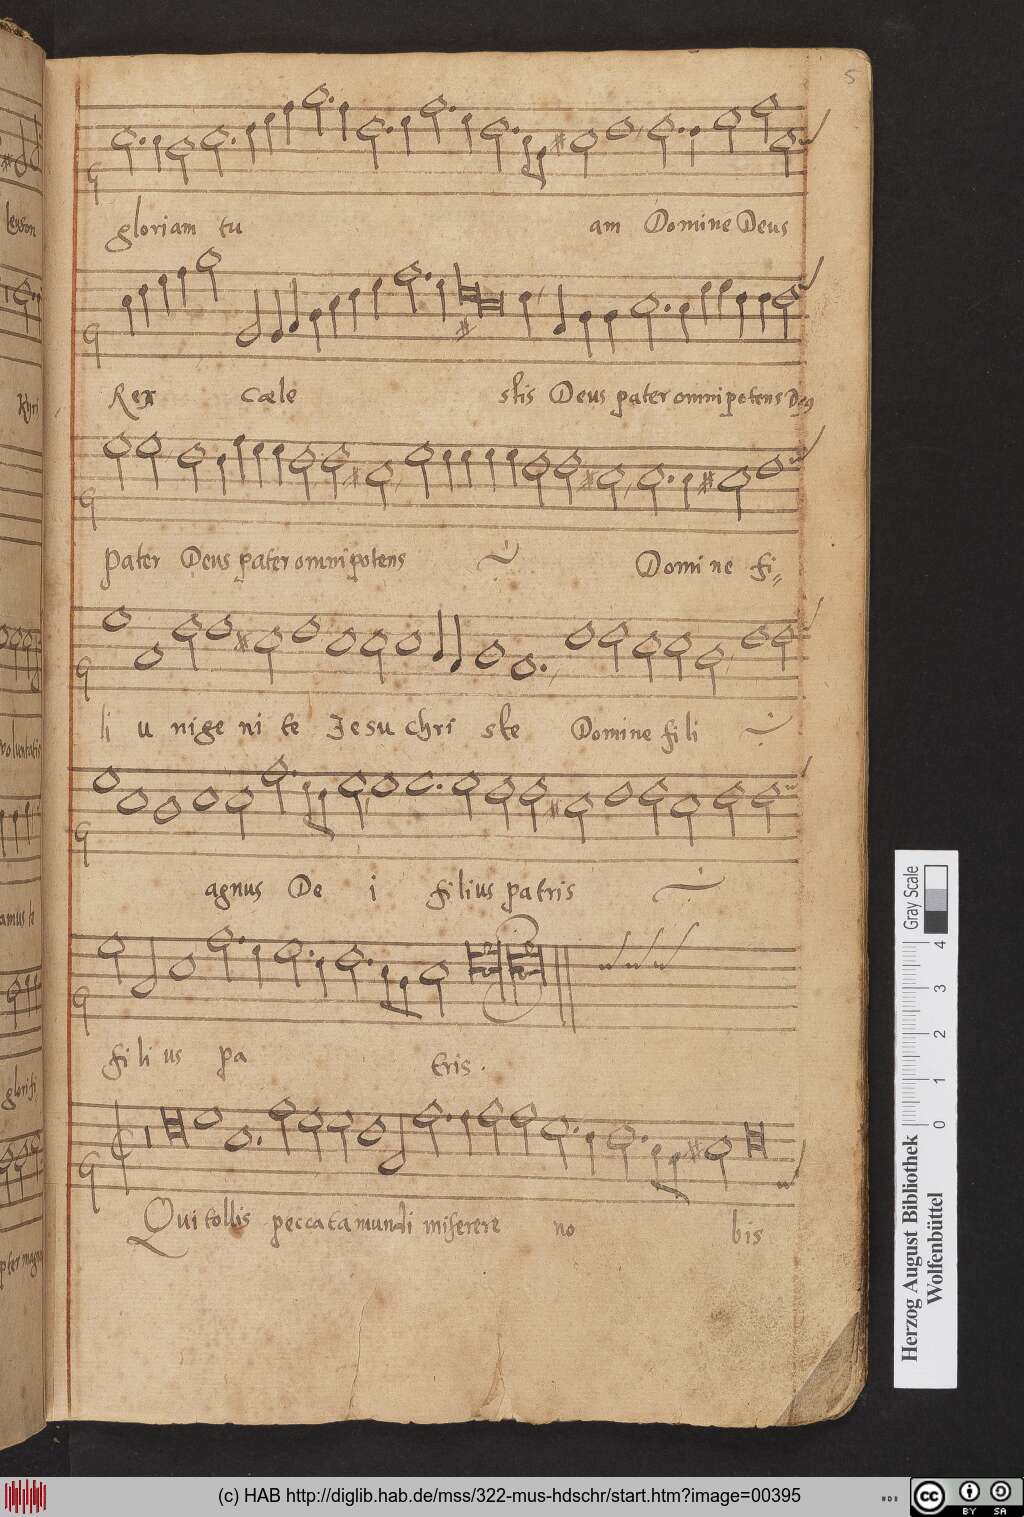 5
gloriam tu am Domine Deus
Rex cæle stis Deus pater omnipotens Deq
Pater Deus pater omnipotens Domi ne fi
li u nige ni te Jesu Chri ste Domine fili
agnus De i filius patris
fi li us pa tris.
Qui tollis peccata mundi miserere no bis
leyson
Kyri
voluntatis
amus te
glorifi
pter magn
Gray Scale
0 1 2 3 4
Herzog August Bibliothek
Wolfenbüttel
(c) HAB http://diglib.hab.de/mss/322-mus-hdschr/start.htm?image=00395
HAB
cc BY SA